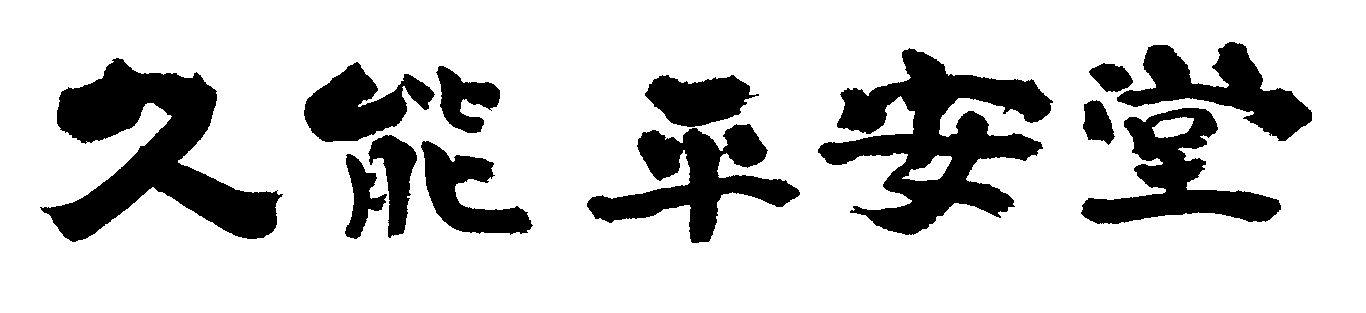 久能平安堂